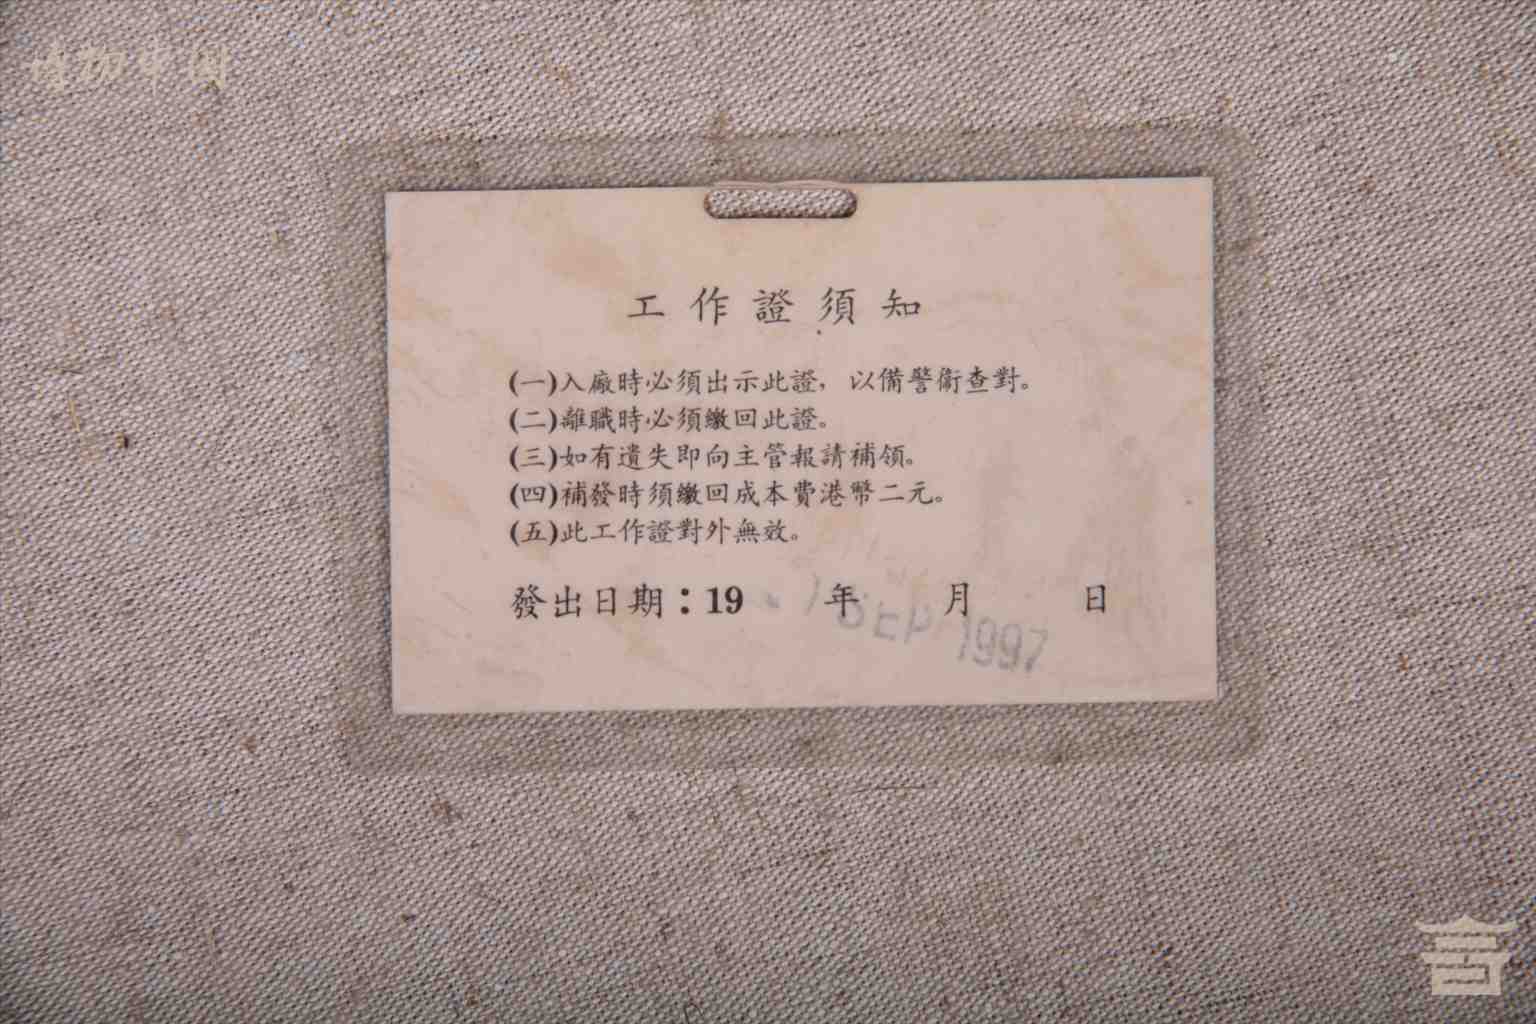 博物中国
工作證須知
(一)入廠時必須出示此證，以備警衛查對。
(二)離職時必須繳回此證。
(三)如有遺失即向主管報請補領。
(四)補發時須繳回成本費港幣二元。
(五)此工作證對外無效。
發出日期：19 年 月 日
SEP 1997